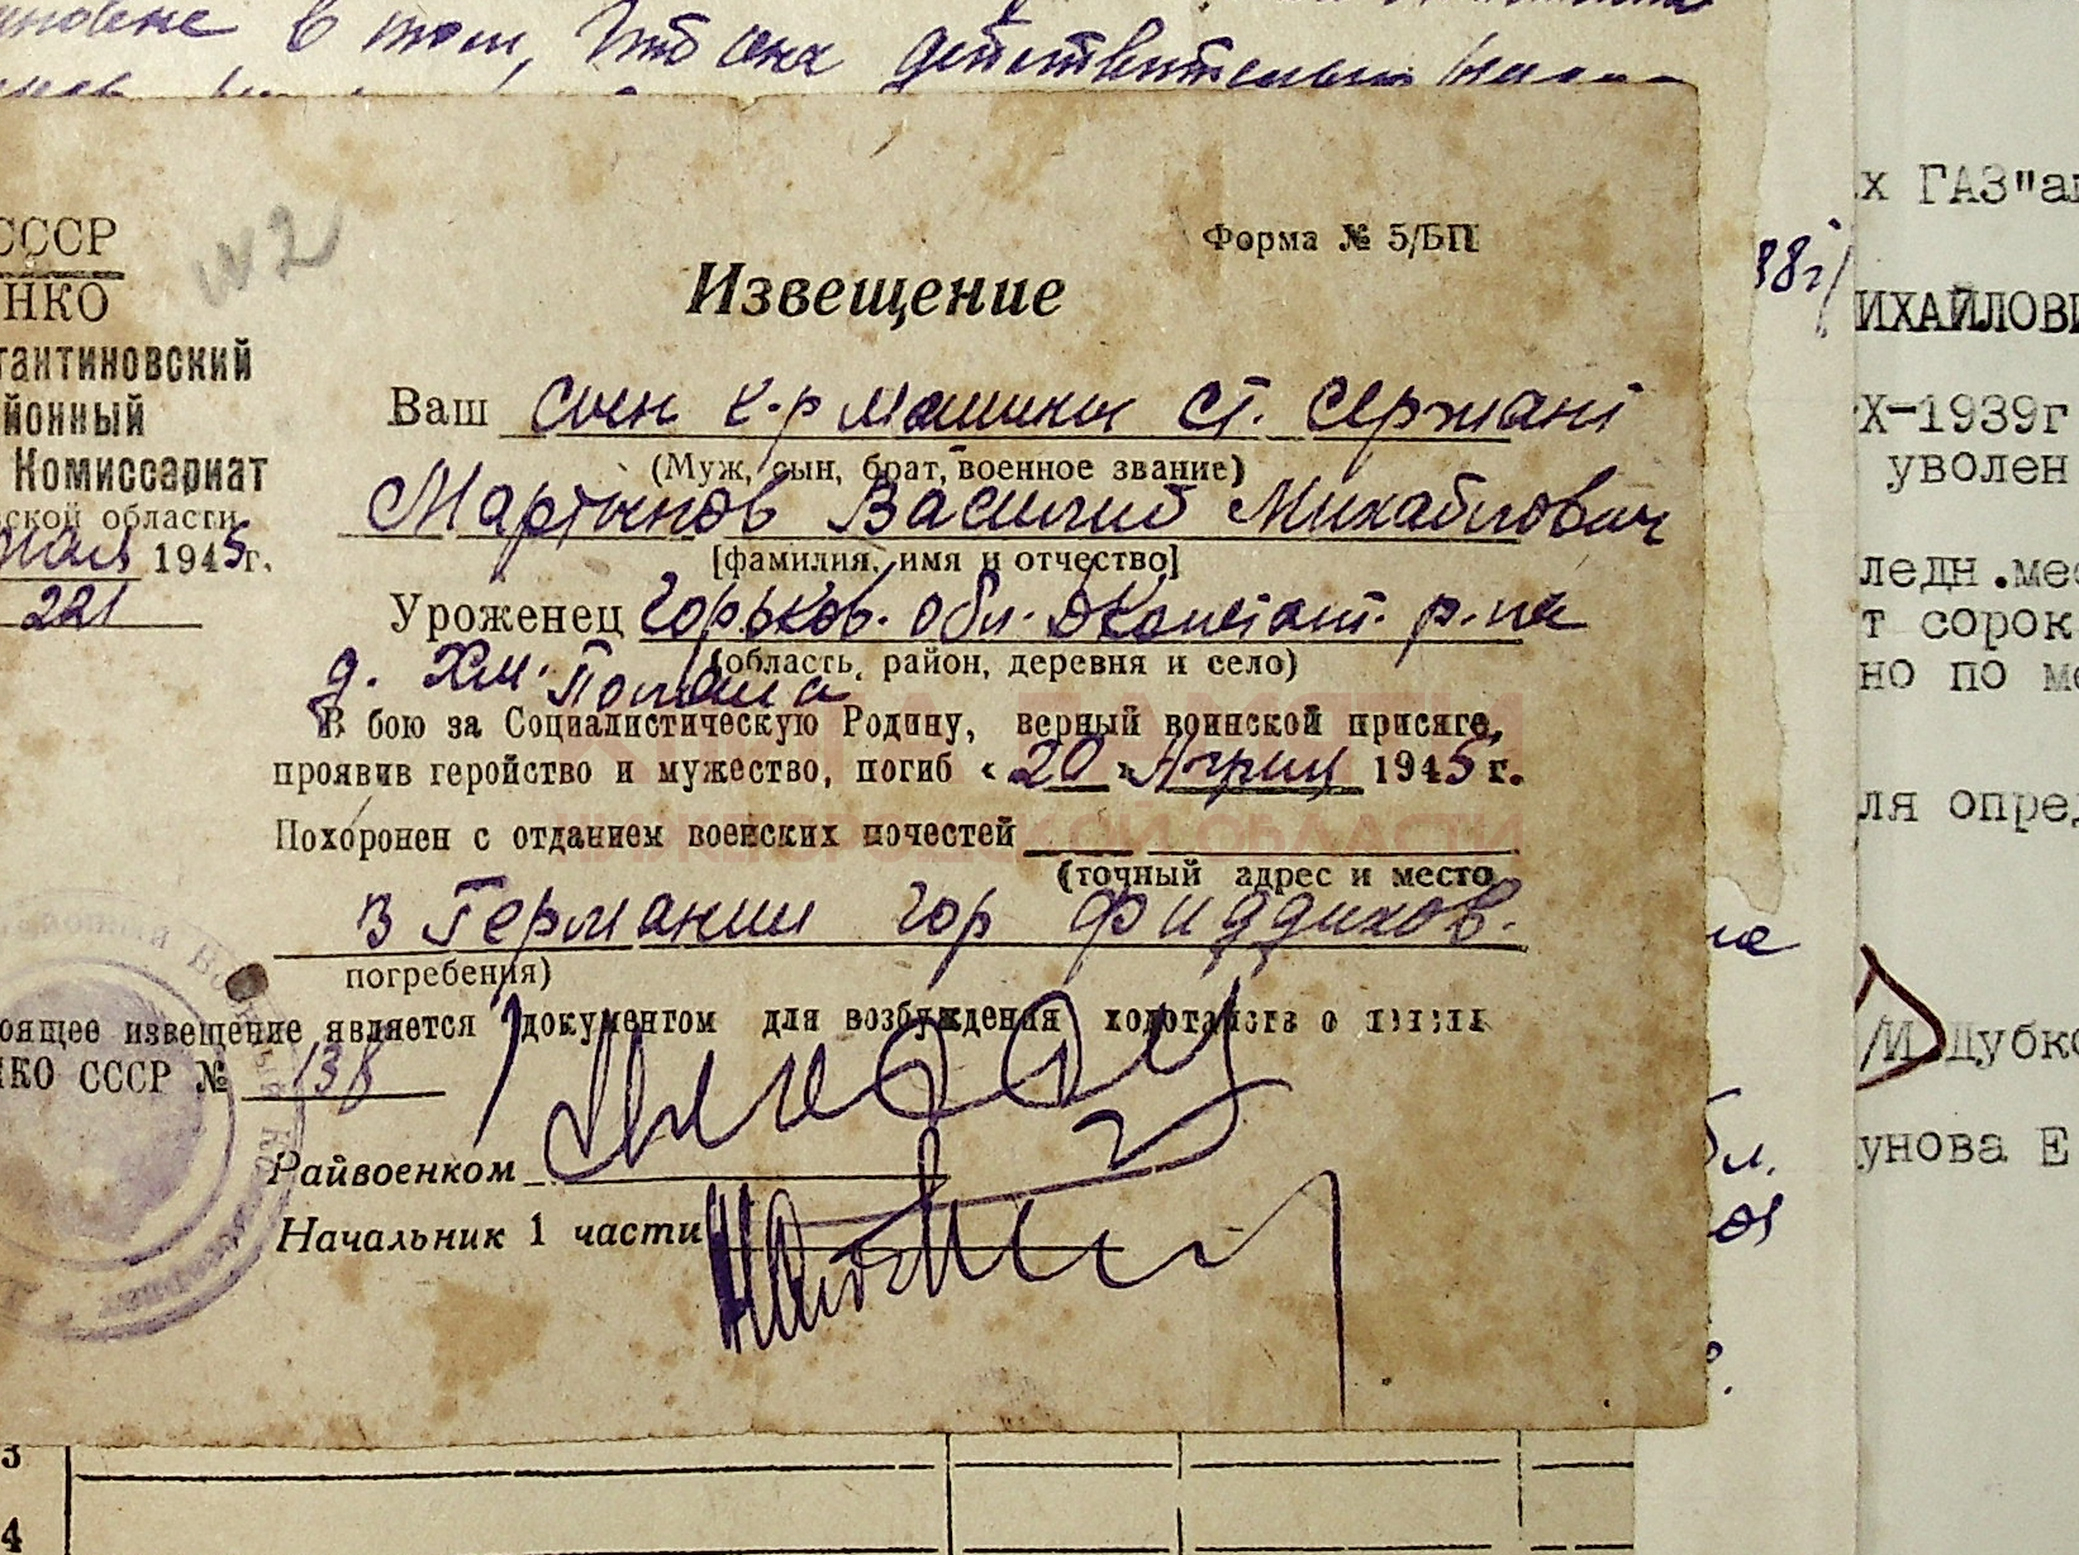 в том, что она действительно
СССР
НКО
№2
Форма № 5/БП
Извещение
тантиновский
йонный
Комиссариат
ской области
мая 1945г.
221
Ваш сын к-р машины ст. сержант
(Муж, сын, брат, военное звание)
Мартынов Василий Михайлович
[фамилия, имя и отчество]
Уроженец Горьков. обл. Дконстант. р-на
(область, район, деревня и село)
д. Хм. Поляна
В бою за Социалистическую Родину, верный воинской присяге,
проявив геройство и мужество, погиб «20» Април 1945 г.
Похоронен с отданием воинских почестей
(точный адрес и место
в Германии гор Фиддихов.
погребения)
оящее извещение является документом для возбуждения ходотайств о пенсии
НКО СССР № 138
Райвоенком
Начальник 1 части
КНИГА ПАМЯТИ
НИЖЕГОРОДСКОЙ ОБЛАСТИ
х ГАЗ"ап
38г/
ИХАЙЛОВИ
Х-1939г
уволен
ледн.мес
т сорок
но по ме
ля опред
на
/И Дубко
бл.
унова Е
3
4